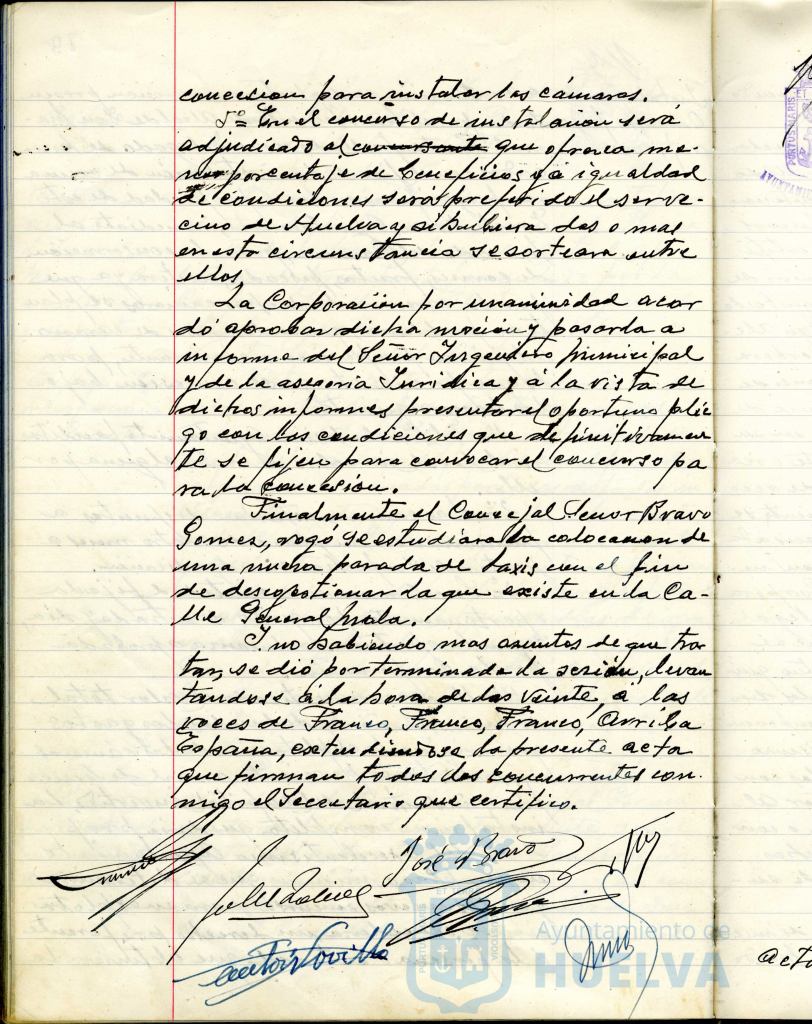 concesion para instalar las cámaras.
5º En el concurso de instalación será
adjudicado al concursante que ofrezca me-
nor porcentaje de beneficios y á igualdad
de condiciones será preferido el ser ve-
cino de Huelva y si hubiera dos o mas
en esta circunstancia se sorteara entre
ellos.
La Corporación por unanimidad acor
dó aprobar dicha moción y pasarla a
informe del Señor Ingeniero municipal
y de la asesoria Juridica y á la vista de
dichos informes presentar el oportuno plie
go con las condiciones que definitivamen
te se fijen para convocar el concurso pa
ra la concesion.
Finalmente el Concejal Señor Bravo
Gomez, rogó se estudiara la colocacion de
una nueva parada de taxis con el fin
de descongestionar la que existe en la Ca-
lle General Mola.
Y no habiendo mas asuntos de que tra
tar, se dió por terminada la sesión, levan
tandose á la hora de las veinte á las
voces de Franco, Franco, Franco, Arriba
España, extendiendose la presente acta
que firman todos los concurrentes con-
migo el Secretario que certifico.
José Bravo
Ayuntamiento de
HUELVA
PORTUS MARIS ET
acta